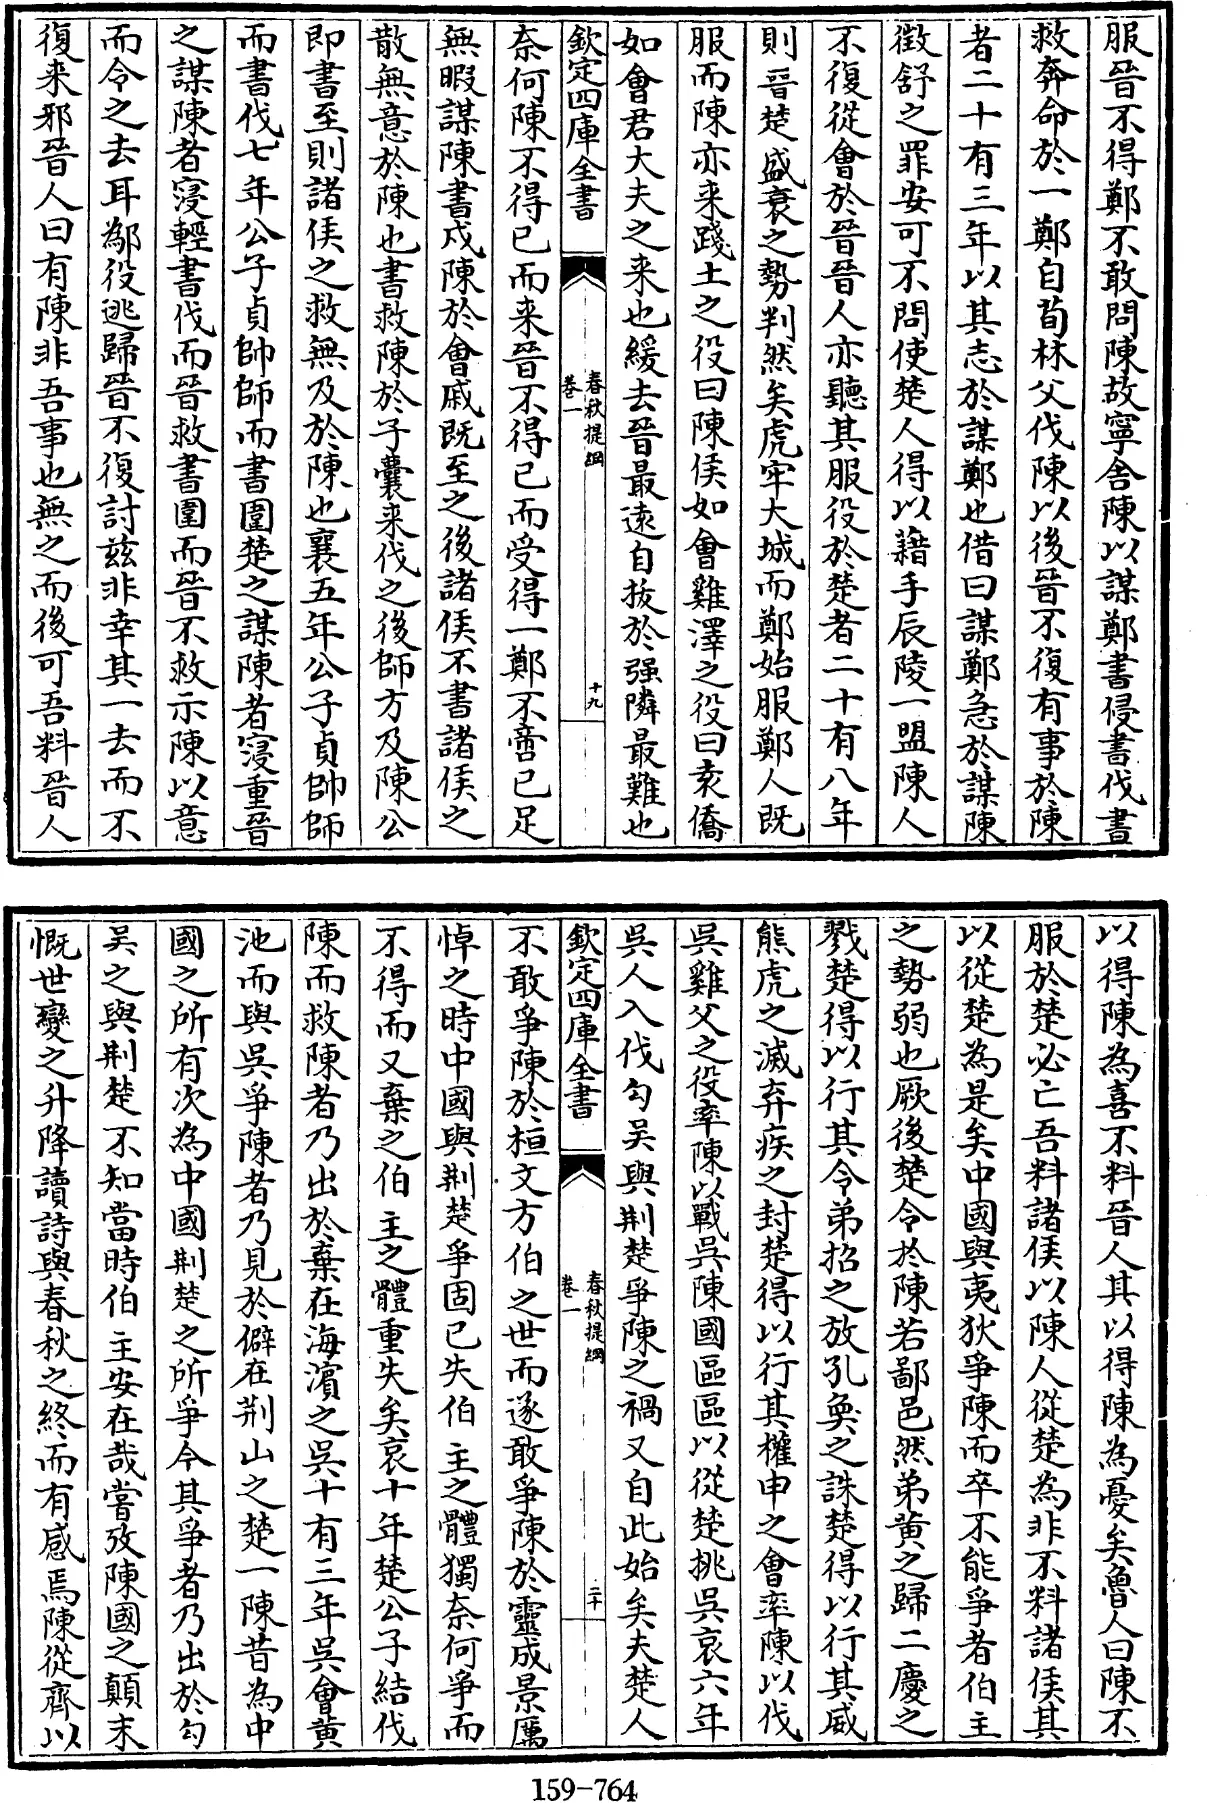 服晉不得鄭不敢問陳故寧舍陳以謀鄭書侵書伐書
救奔命於一鄭自荀林父伐陳以後晉不復有事於陳
者二十有三年以其志於謀鄭也借曰謀鄭急於謀陳
徵舒之罪安可不問使楚人得以藉手辰陵一盟陳人
不復從會於晉晉人亦聽其服役於楚者二十有八年
則晉楚盛衰之勢判然矣虎牢大城而鄭始服鄭人既
服而陳亦来踐土之役曰陳侯如會雞澤之役曰袁僑
如會君大夫之来也緩去晉最逺自拔於强隣最難也
欽定四庫全書
春秋提綱
卷一
十九
奈何陳不得已而来晉不得已而受得一鄭不啻已足
無暇謀陳書戍陳於會戚既至之後諸侯不書諸侯之
散無意於陳也書救陳於子囊来伐之後師方及陳公
即書至則諸侯之救無及於陳也襄五年公子貞帥師
而書伐七年公子貞帥師而書圍楚之謀陳者寖重晉
之謀陳者寖輕書伐而晉救書圍而晉不救示陳以意
而令之去耳鄬役逃歸晉不復討兹非幸其一去而不
復来邪晉人曰有陳非吾事也無之而後可吾料晉人
以得陳為喜不料晉人其以得陳為憂矣魯人曰陳不
服於楚必亡吾料諸侯以陳人從楚為非不料諸侯其
以從楚為是矣中國與夷狄爭陳而卒不能爭者伯主
之勢弱也厥後楚令於陳若鄙邑然弟黄之歸二慶之
戮楚得以行其令弟招之放孔奐之誅楚得以行其威
熊虎之滅弃疾之封楚得以行其權申之會率陳以伐
吳雞父之役率陳以戰吳陳國區區以從楚挑吳哀六年
吳人入伐勾吴與荆楚爭陳之禍又自此始矣夫楚人
欽定四庫全書
春秋提綱
卷一
二十
不敢爭陳於桓文方伯之世而遂敢爭陳於靈成景厲
悼之時中國與荆楚爭固已失伯主之體獨奈何爭而
不得而又棄之伯主之體重失矣哀十年楚公子結伐
陳而救陳者乃出於棄在海濱之吳十有三年吳會黄
池而與吳爭陳者乃見於僻在荆山之楚一陳昔為中
國之所有次為中國荆楚之所爭今其爭者乃出於勾
吳之與荆楚不知當時伯主安在哉嘗攷陳國之顛末
慨世變之升降讀詩與春秋之終而有感焉陳從齊以
159-764